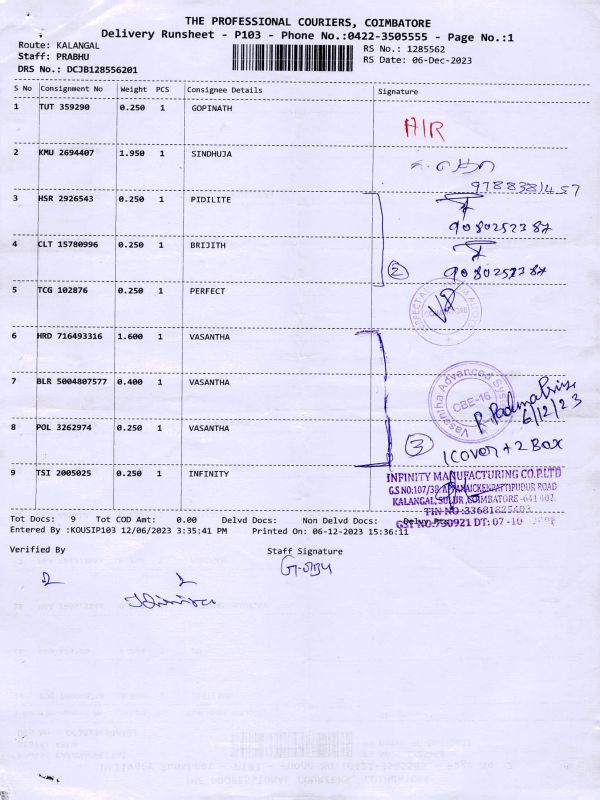 THE PROFESSIONAL COURIERS, COIMBATORE
Delivery Runsheet - P103 - Phone No.:0422-3505555 - Page No.:1
Route: KALANGAL
RS No.: 1285562
Staff: PRABHU
RS Date: 06-Dec-2023
DRS No.: DCJB128556201
S No Consignment No Weight PCS Consignee Details Signature
1 TUT 359290 0.250 1 GOPINATH
AIR
2 KMU 2694407 1.950 1 SINDHUJA
9788381457
3 HSR 2926543 0.250 1 PIDILITE
9080252387
4 CLT 15780996 0.250 1 BRIJITH
2 9080252387
5 TCG 102876 0.250 1 PERFECT
6 HRD 716493316 1.600 1 VASANTHA
7 BLR 5004807577 0.400 1 VASANTHA
Vasantha Advanced Sys
CBE-16
6/12/23
8 POL 3262974 0.250 1 VASANTHA
3 1 Cover + 2 Box
9 TSI 2005025 0.250 1 INFINITY
INFINITY MANUFACTURING CO.P.LTD
KALANGAL, SULUR, COIMBATORE -641 402.
TIN NO :33681825403
Tot Docs: 9 Tot COD Amt: 0.00 Delvd Docs: Non Delvd Docs:
Entered By :KOUSIP103 12/06/2023 3:35:41 PM Printed On: 06-12-2023 15:36:11
Verified By
Staff Signature